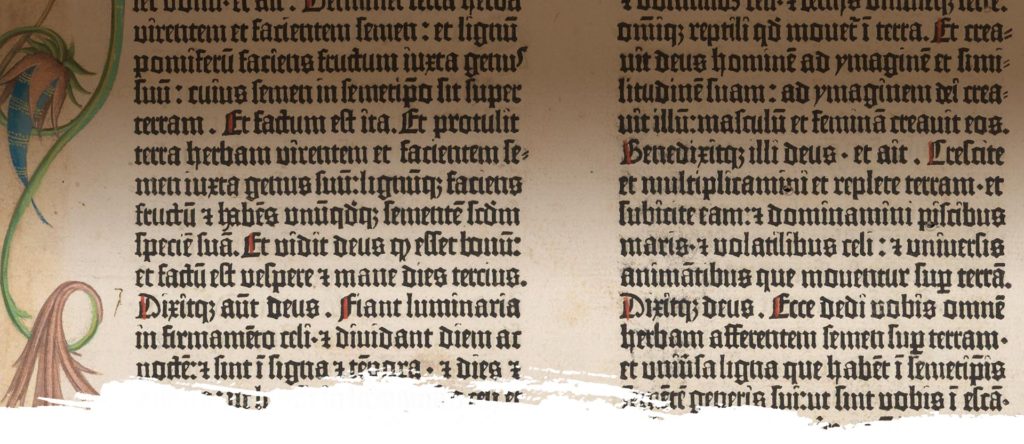 et ait. Germinet terra herbā
virentem et facientem semen: et lignū
pomiferū faciens fructum iuxta genus
suū: cuius semen in semetip̄o sit super
terram. Et factum est ita. Et protulit
terra herbam virentem et facientem se⸗
men iuxta genus suū: lignūqꝫ faciens
fructū ⁊ habēs unūqdqꝫ sementē scdm
speciē suā. Et vidit deus ꝙ esset bonū:
et factū est vespere ⁊ mane dies tercius.
Dixitqꝫ aūt deus. Fiant luminaria
in firmamēto celi· ⁊ dividant diem ac
noctē: ⁊ sint ī signa ⁊ tēpora· ⁊ dies ⁊
omniqꝫ reptili qd movet ī terra. Et crea⸗
vit deus hominē ad ymaginē et simi⸗
litudinē suam: ad ymaginem dei crea⸗
vit illū: masculū et feminā creavit eos.
Benedixitqꝫ illi deus· et ait. Crescite
et multiplicamini et replete terram· et
subicite eam: ⁊ dominamini piscibus
maris· ⁊ volatilibus celi: ⁊ universis
animātibus que moventur suꝑ terrā.
Dixitqꝫ deus. Ecce dedi vobis omnē
herbam afferentem semen suꝑ terram·
et univ̄sa ligna que habēt ī semetip̄is
semētē generis sui: ut sint vobis ī escā·